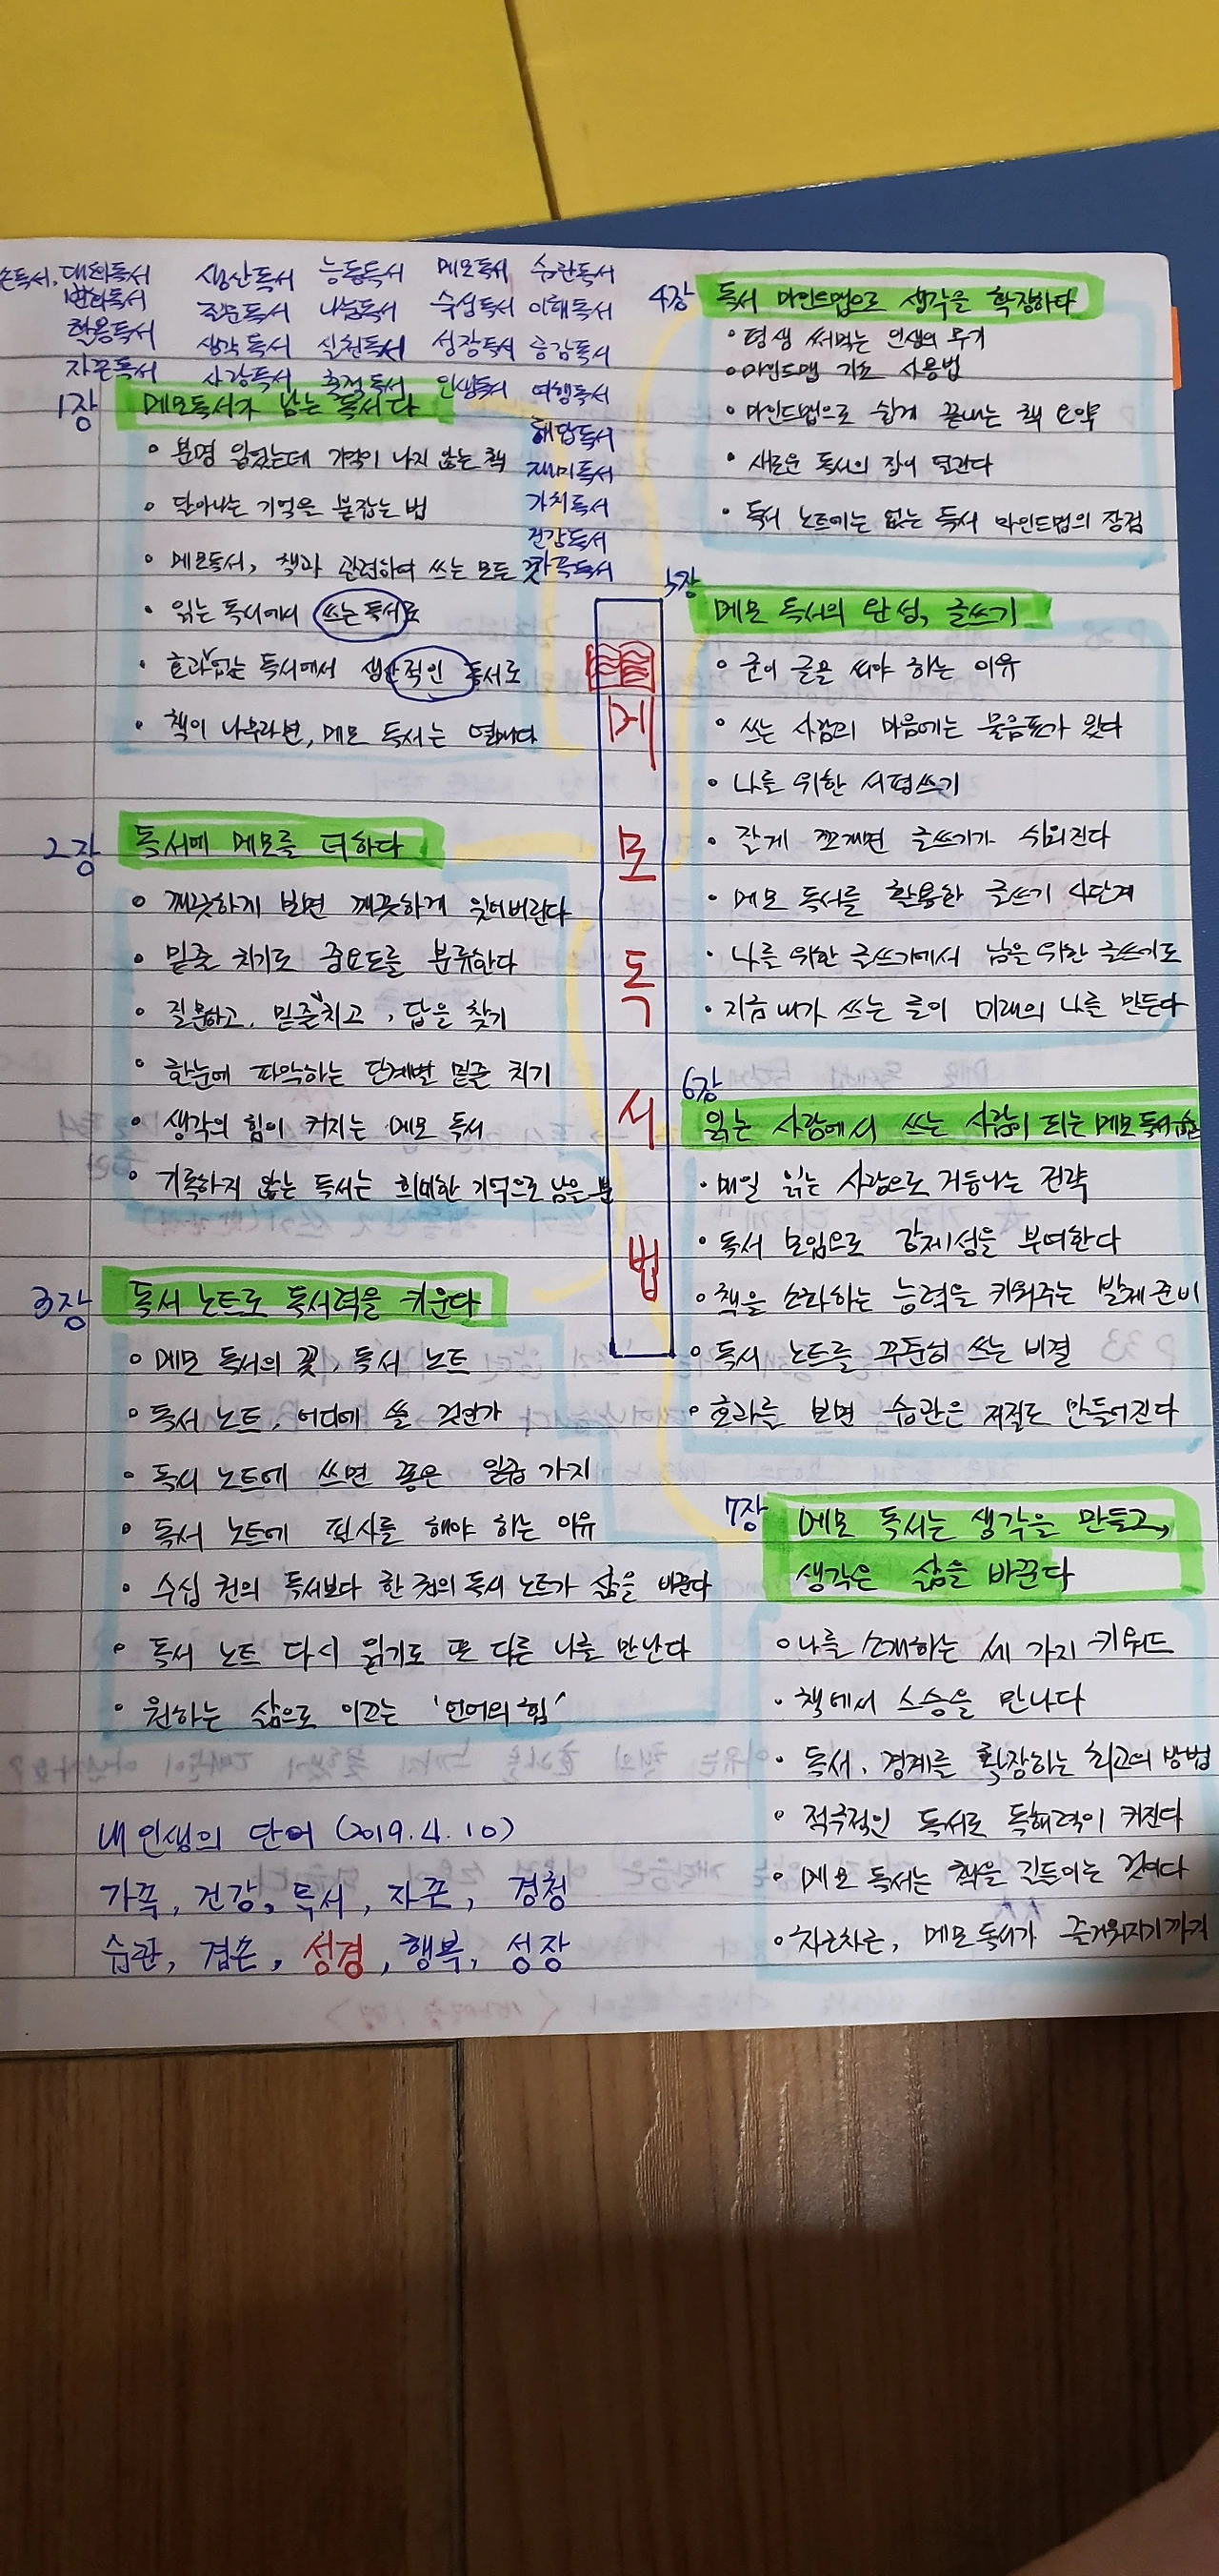 손독서, 대화독서 생산독서 능동독서 메모독서 습관독서
변화독서 질문독서 나눔독서 수업독서 이해독서
활용독서 생각독서 실천독서 성장독서 공감독서
자존독서 사랑독서 흔적독서 인생독서 여행독서
해답독서
재미독서
가치독서
건강독서
가족독서
1장 메모독서가 남는 독서다
• 분명 읽었는데 기억이 나지 않는 책
• 달아나는 기억을 붙잡는 법
• 메모독서, 책과 관련하여 쓰는 모든 것
• 읽는 독서에서 쓰는 독서로
• 효과 없는 독서에서 생산적인 독서로
• 책이 나무라면, 메모 독서는 열매다
2장 독서에 메모를 더하다
• 깨끗하게 보면 깨끗하게 잊어버린다
• 밑줄 치기도 중요도를 분류한다
• 질문하고, 밑줄 치고, 답을 찾기
• 한눈에 파악하는 단계별 밑줄 치기
• 생각의 힘이 커지는 메모 독서
• 기록하지 않는 독서는 희미한 기억으로 남을 뿐
3장 독서 노트로 독서력을 키운다
• 메모 독서의 꽃, 독서 노트
• 독서 노트, 어디에 쓸 것인가
• 독서 노트에 쓰면 좋은 일곱 가지
• 독서 노트에 필사를 해야 하는 이유
• 수십 권의 독서보다 한 권의 독서 노트가 삶을 바꾼다
• 독서 노트 다시 읽기로 또 다른 나를 만난다
• 원하는 삶으로 이끄는 '언어의 힘'
내 인생의 단어 (2019.4.10)
가족, 건강, 독서, 자존, 경청
습관, 겸손, 성경, 행복, 성장
메
모
독
서
법
4장 독서 마인드맵으로 생각을 확장하다
• 평생 써먹는 인생의 무기
• 마인드맵 기초 사용법
• 마인드맵으로 쉽게 끝내는 책 요약
• 새로운 독서의 장이 열린다
• 독서 노트에는 없는 독서 마인드맵의 장점
5장
메모 독서의 완성, 글쓰기
• 굳이 글을 써야 하는 이유
• 쓰는 사람의 마음에는 물음표가 있다
• 나를 위한 서평쓰기
• 잘게 쪼개면 글쓰기가 쉬워진다
• 메모 독서를 활용한 글쓰기 4단계
• 나를 위한 글쓰기에서 남을 위한 글쓰기로
• 지금 내가 쓰는 글이 미래의 나를 만든다
6장
읽는 사람에서 쓰는 사람이 되는 메모 독서 습관
• 매일 읽는 사람으로 거듭나는 전략
• 독서 모임으로 강제성을 부여한다
• 책을 소화하는 능력을 키워주는 발제 준비
• 독서 노트를 꾸준히 쓰는 비결
• 효과를 보면 습관은 저절로 만들어진다
7장 메모 독서는 생각을 만들고,
생각은 삶을 바꾼다
• 나를 소개하는 세 가지 키워드
• 책에서 스승을 만나다
• 독서, 경계를 확장하는 최고의 방법
• 적극적인 독서로 독해력이 커진다
• 메모 독서는 책을 길들이는 것이다
• 차근차근, 메모독서가 즐거워지기까지